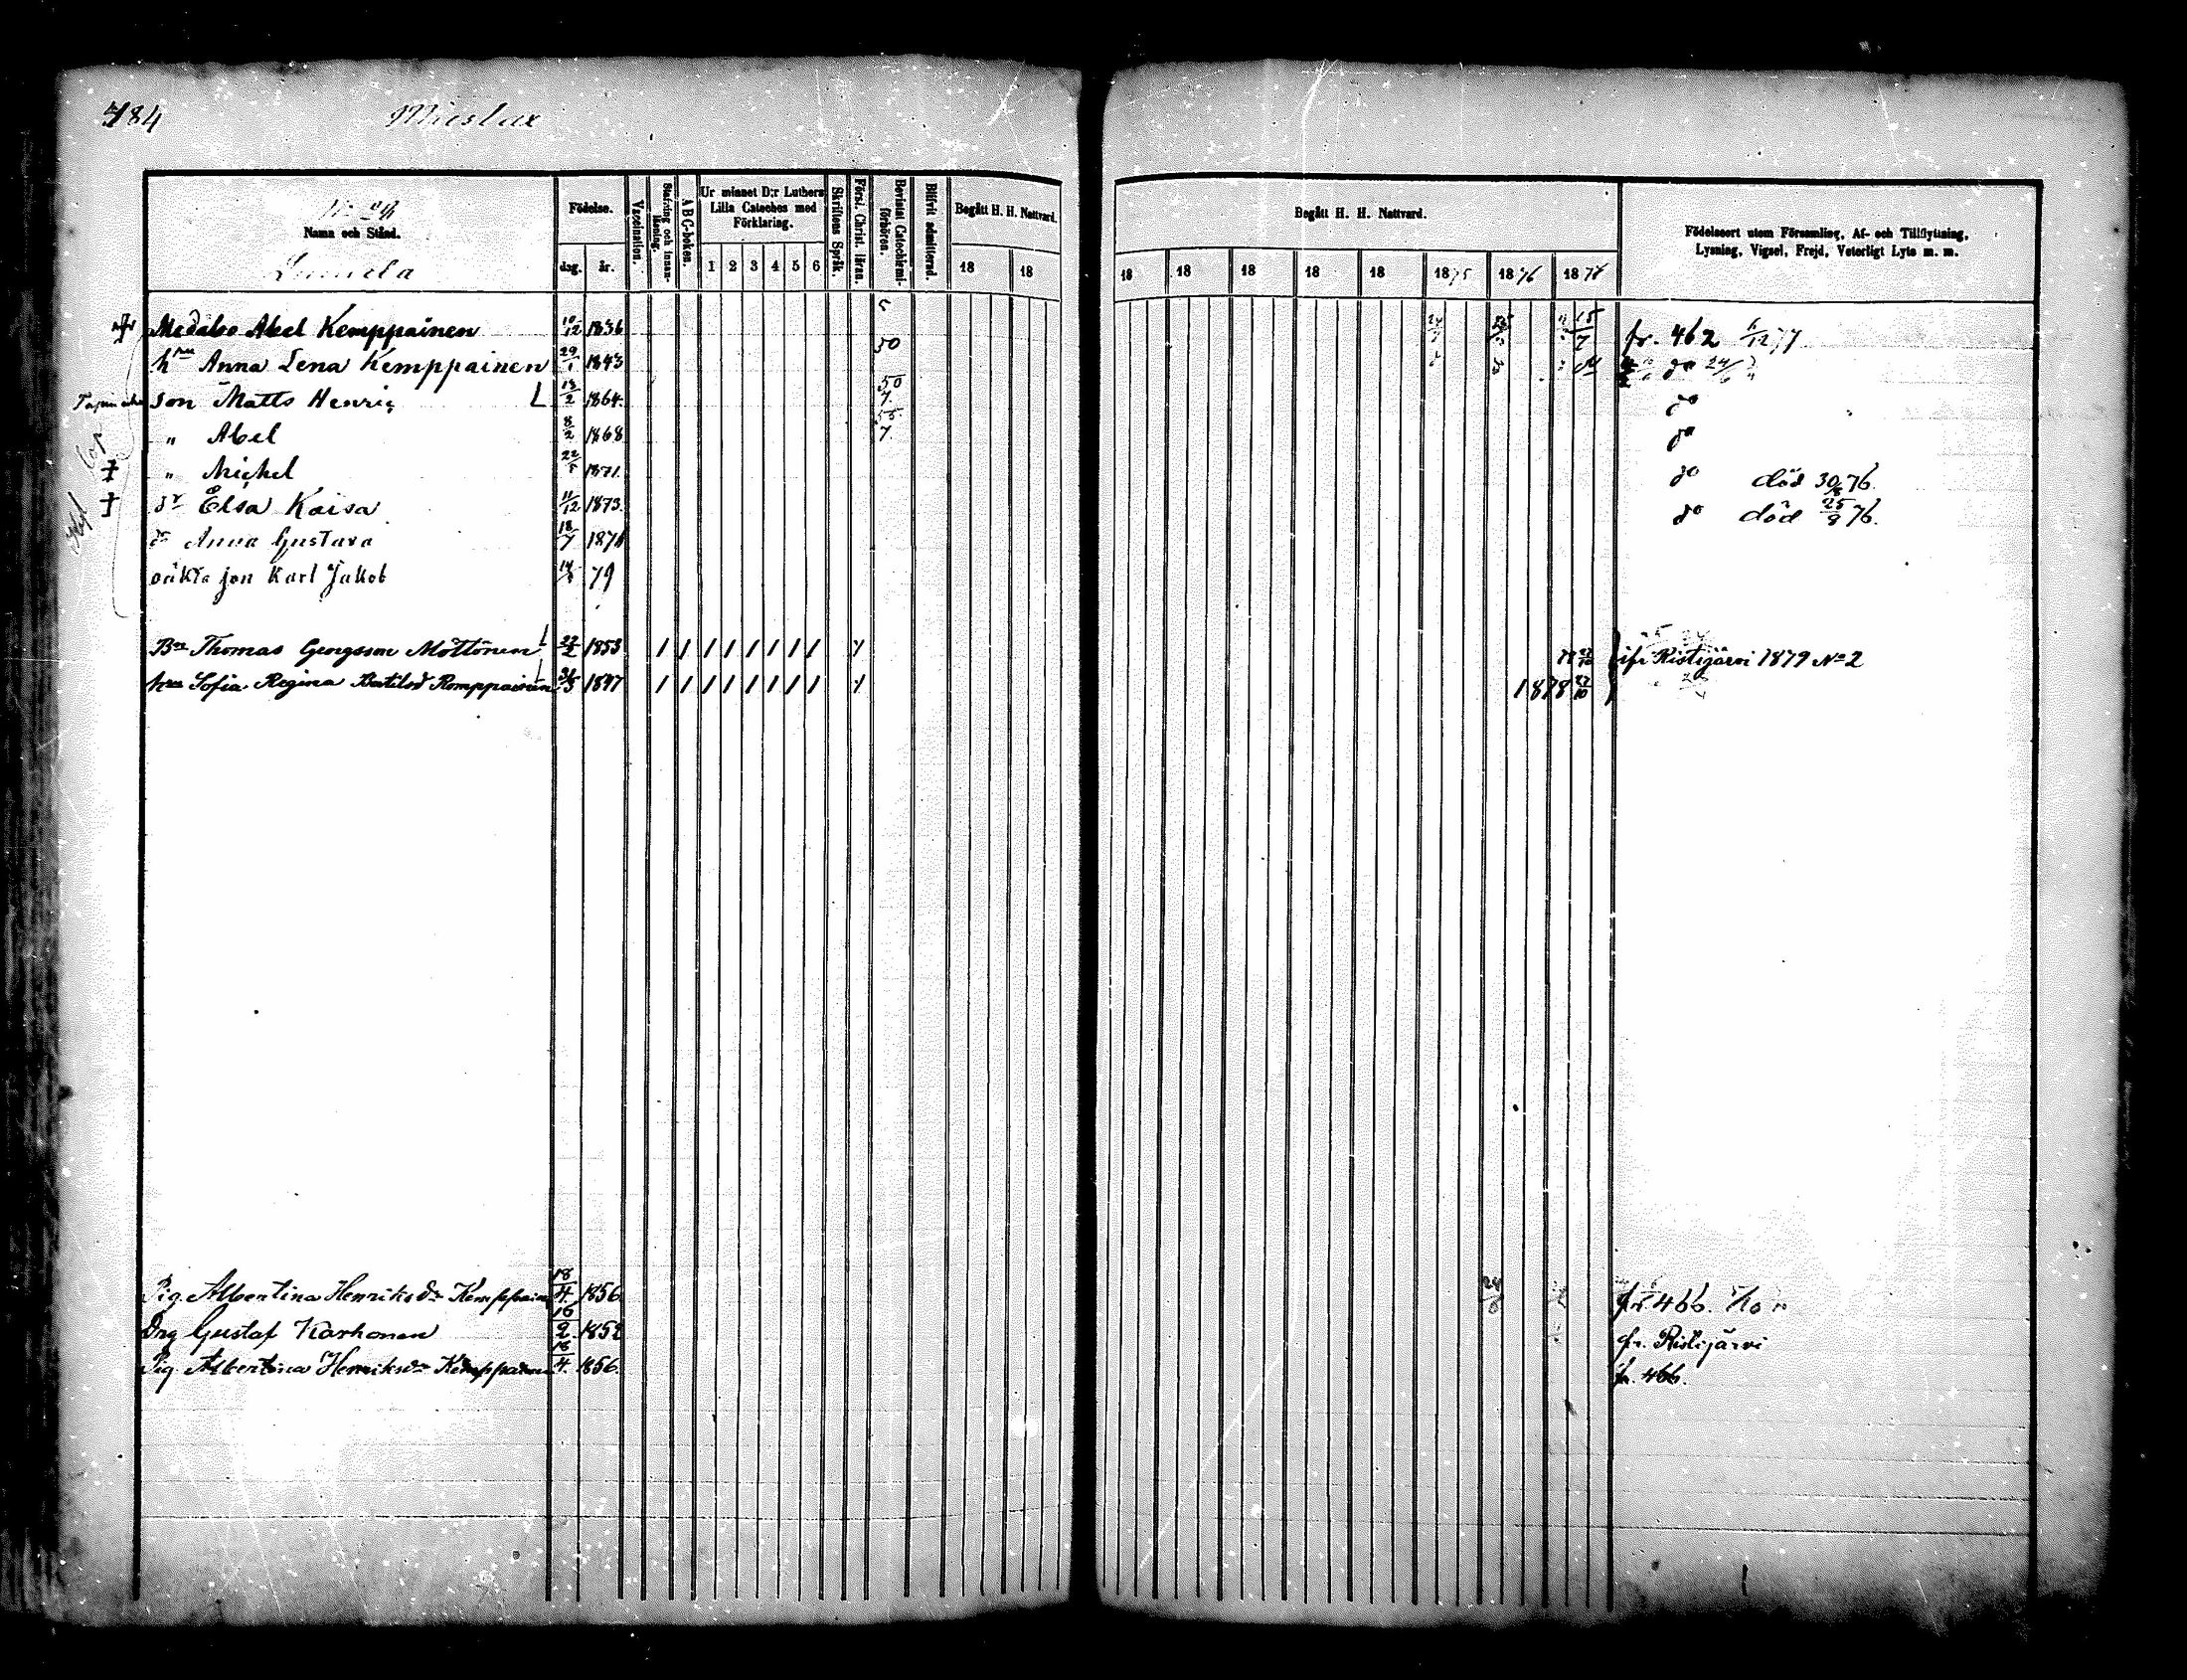 484 Mieslax
Namn och Stånd.
Födelse.
dag. år.
Vaccination.
Stafning och innan-läsning.
A B C-boken.
Ur minnet D:r Luthers Lilla Cateches med Förklaring.
1 2 3 4 5 6
Skriftens Språk.
Först. Christ. läran.
Bevistat Catechismi-förhören.
Blifvit admitterad.
Begått H. H. Nattvard.
18 18
Begått H. H. Nattvard.
18 18 18 18 18 1875 1876 1877
Födelseort utom Församling, Af- och Tillflyttning, Lysning, Vigsel, Frejd, Veterligt Lyte m. m.
Abel Kemppainen 10/12 1836 fr. 462 6/12 77
hru Anna Lena Kemppainen 29/1 1843 50 do 24/6
son Matts Henric 18/2 1864 50 7 do
" Abel 8/2 1868 7 do
" Michel 22/5 1871 do död 30/8 76.
dr Elsa Kaisa 11/12 1873. do död 25/8 76.
dr Anna Gustava 18/7 187
oäkta son Karl Jakob 14 79
Bn Thomas Georgsson Möttönen 22/2 1853 / / / / / / / / 27/10 ifr Ristijärvi 1879 No 2
hru Sofia Regina Batilsd Romppainen 1847 / / / / / / / / 1878 27/10
Pig. Albertina Henriksdr Kemppain 18/4 1856 24 fr. 466.
Drg Gustaf Karhonen 16/2 1852 fr. Ristijärvi
Pig. Albertina Henriksdr Kemppainen 18/4 1856. fr. 466.